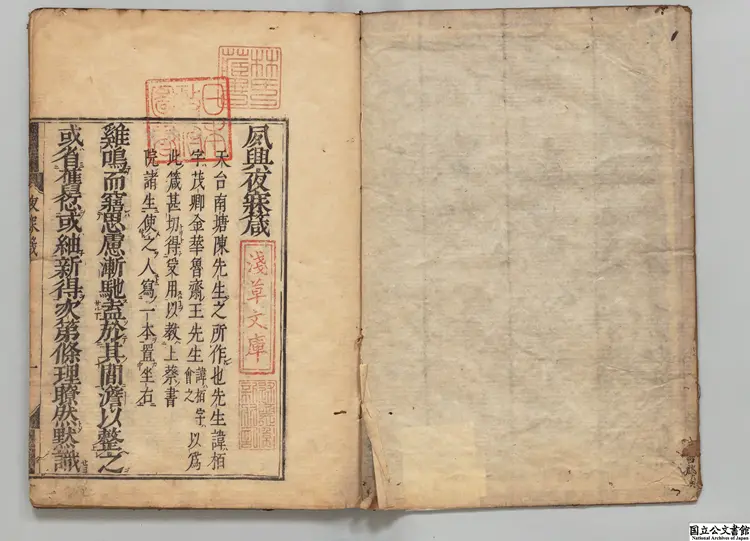 夙興夜寐箴
天台南塘陳先生之所作也先生諱栢
字茂卿金華魯齋王先生諱栢字會之以爲
此箴甚切得受用以教上蔡書
院諸生使之人寫一本置坐右
雞鳴而寤思慮漸馳盍於其間澹以整之
或省舊愆或紬新得次第條理瞭然默識
夜寐箴
一
林氏藏書
日本政府圖書
淺草文庫
国立公文書館
National Archives of Japan